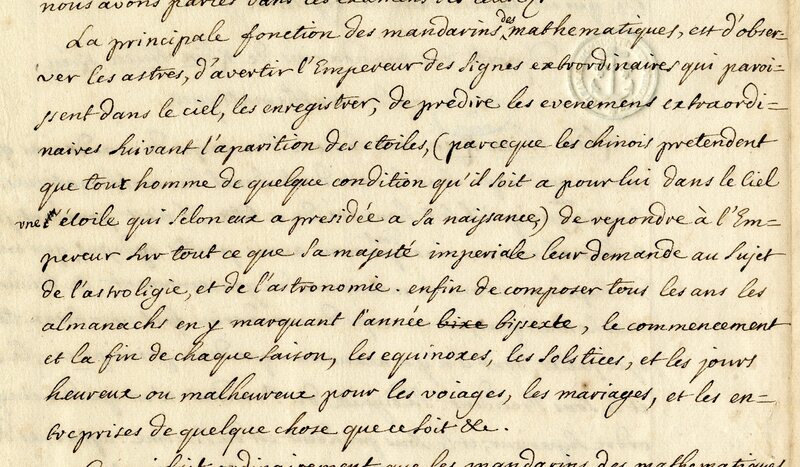 nous avons parlés dans les examens des
La principale fonction des mandarins des mathematiques, est d'obser=
ver les astres, d'avertir l'Empereur des signes extrordinaires qui paroi=
ssent dans le ciel, les enregistrer, de predire les evenemens extraordi=
naires suivant l'aparition des etoiles, (parceque les chinois pretendent
que tout homme de quelque condition qu'il soit a pour lui dans le ciel
une étoile qui selon eux a presidée a sa naissance,) de repondre à l'Em=
pereur sur tout ce que sa majesté imperiale leur demande au sujet
de l'astroligie, et de l'astronomie. enfin de composer tous les ans les
almanachs en y marquant l'année bixe bisexte, le commencement
et la fin de chaque saison, les equinoxes, les solstices, et les jours
heureux ou malheureux pour les voiages, les mariages, et les en=
treprises de quelque chose que ce soit &c.
ordinairement que les mandarins des mathematiques